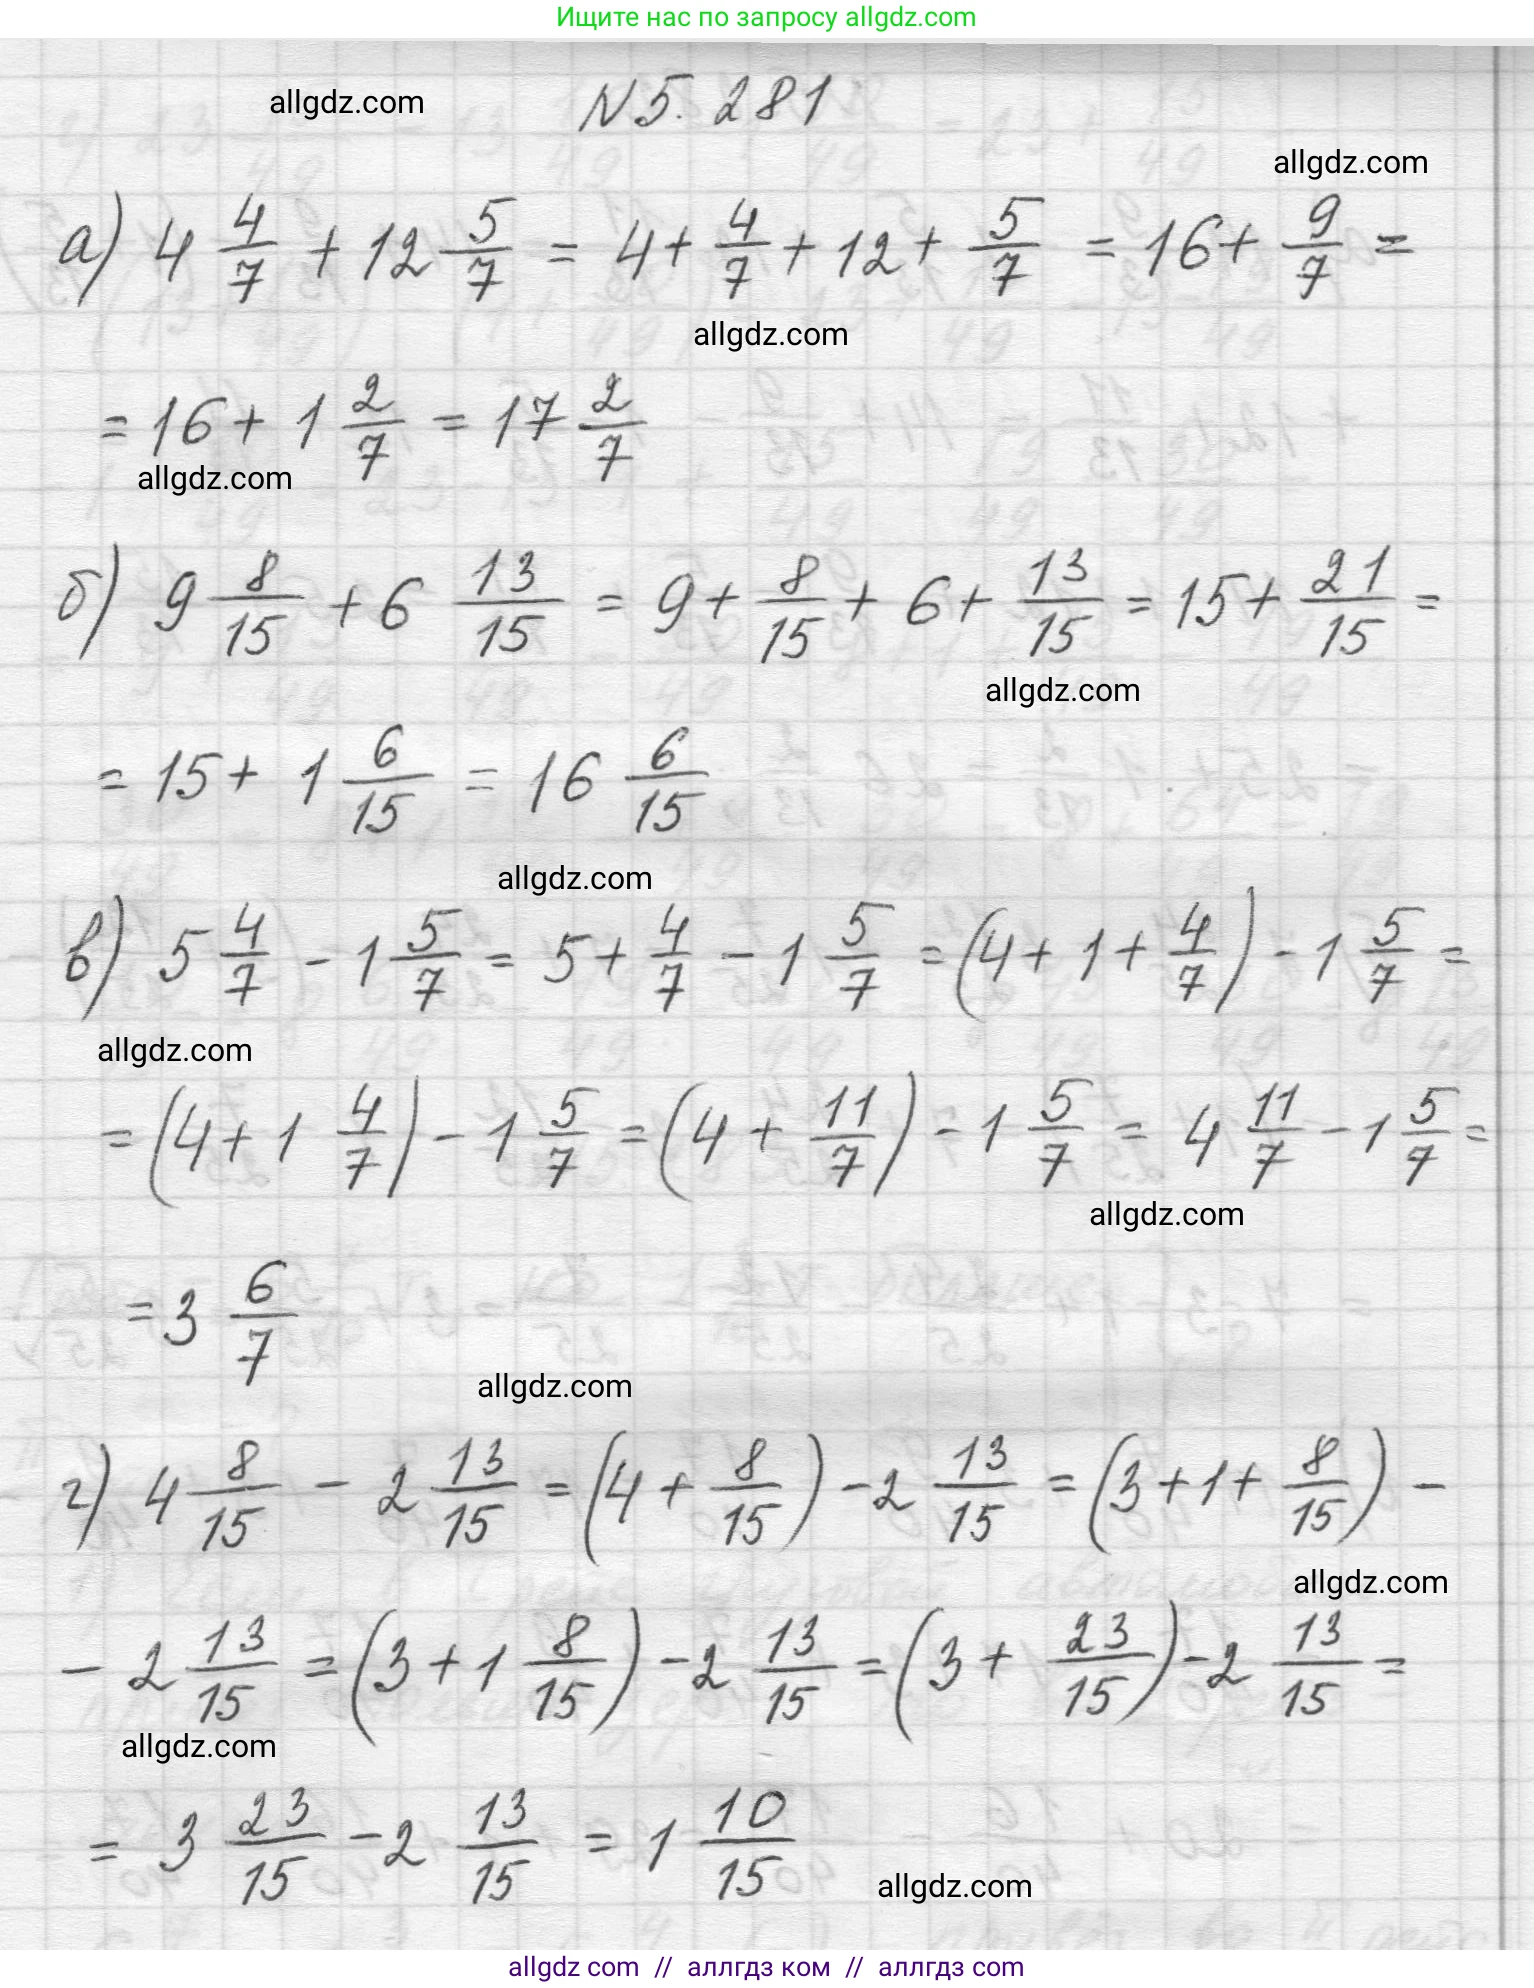 Ищите нас по запросу allgdz.com
allgdz.com
N 5. 281
allgdz.com
а) 4 4/7 + 12 5/7 = 4 + 4/7 + 12 + 5/7 = 16 + 9/7 =
allgdz.com
= 16 + 1 2/7 = 17 2/7
allgdz.com
б) 9 8/15 + 6 13/15 = 9 + 8/15 + 6 + 13/15 = 15 + 21/15 =
allgdz.com
= 15 + 1 6/15 = 16 6/15
allgdz.com
в) 5 4/7 - 1 5/7 = 5 + 4/7 - 1 5/7 = (4 + 1 + 4/7) - 1 5/7 =
allgdz.com
= (4 + 1 4/7) - 1 5/7 = (4 + 11/7) - 1 5/7 = 4 11/7 - 1 5/7 =
allgdz.com
= 3 6/7
allgdz.com
г) 4 8/15 - 2 13/15 = (4 + 8/15) - 2 13/15 = (3 + 1 + 8/15) -
allgdz.com
- 2 13/15 = (3 + 1 8/15) - 2 13/15 = (3 + 23/15) - 2 13/15 =
allgdz.com
= 3 23/15 - 2 13/15 = 1 10/15
allgdz.com
allgdz com // аллгдз ком // аллгдз com